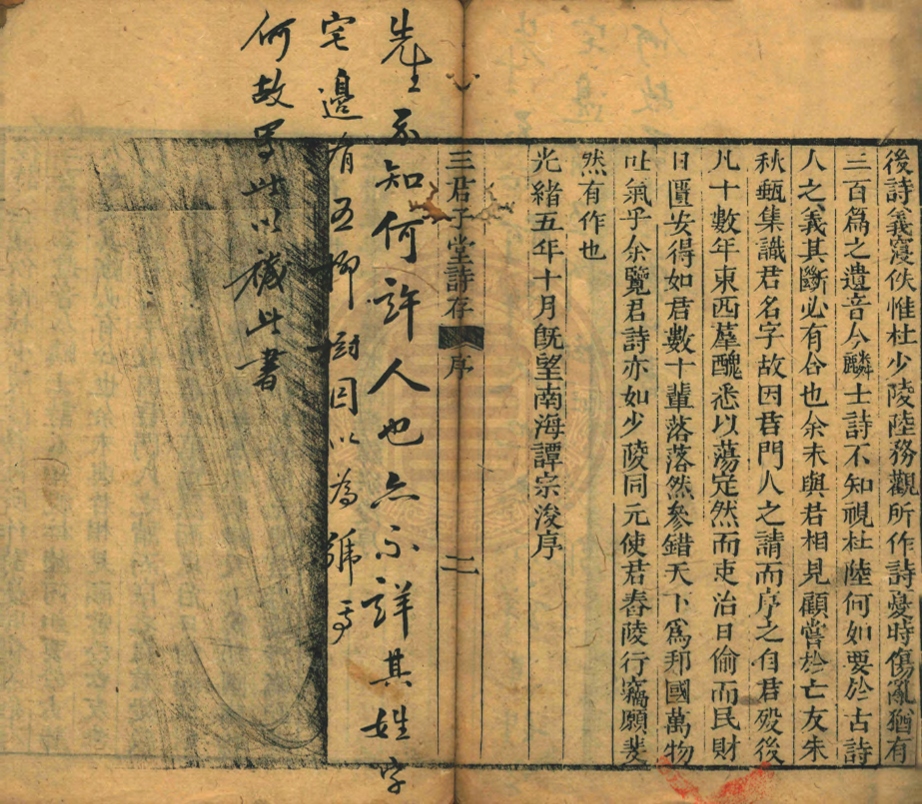 後詩義寖佚惟杜少陵陸務觀所作詩憂時傷亂猶有
三百篇之遺音今麟士詩不知視杜陸何如要於古詩
人之義其斷必有合也余未與君相見顧嘗於亡友朱
秋甄集識君名字故因君門人之請而序之自君歿後
凡十數年東西羣醜悉以蕩定然而吏治日偷而民財
日匱安得如君數十輩落落然參錯天下爲邦國萬物
吐氣乎余覽君詩亦如少陵同元使君舂陵行竊願斐
然有作也
光緒五年十月旣望南海譚宗浚序
三君子堂詩存 序 二
先生不知何許人也亦不詳其姓字
宅邊有五柳樹因以為號焉
何故寫此以穢此書